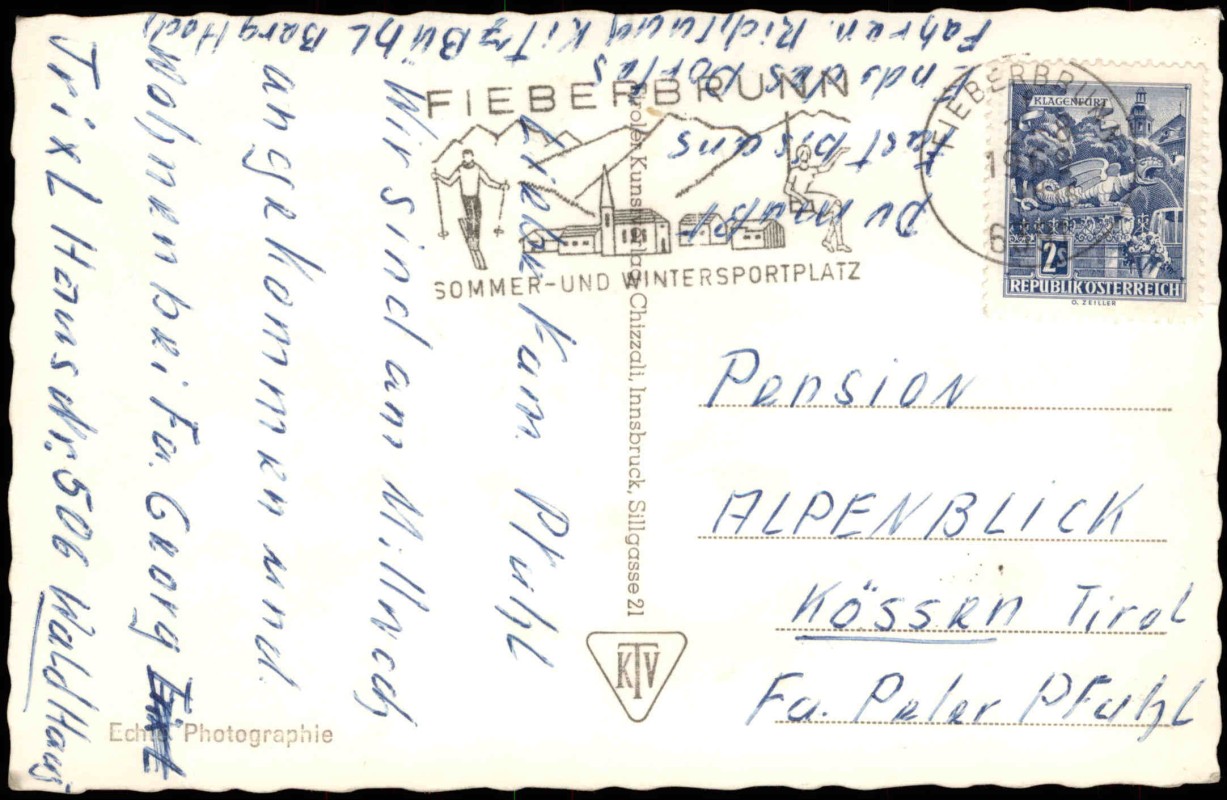 Liebe Fam. Pfuhl
Wir sind am Mittwoch
angekommen und
Wohnen bei Fa. Georg
TrixL Haus Nr. 506 WaldHaus
Du mußt
fast bis ans
Ende des Dorfes
Fahren. Richtung KitzBühL Berg Hoch
FIEBERBRUNN
SOMMER-UND WINTERSPORTPLATZ
FIEBERBRUNN
KLAGENFURT
2S
REPUBLIK ÖSTERREICH
O. ZEILLER
Tiroler Kunstverlag Chizzali, Innsbruck, Sillgasse 21
KTV
Echte Photographie
Pension
ALPENBLICK
KÖSSEN Tirol
Fa. Peter PFuhl